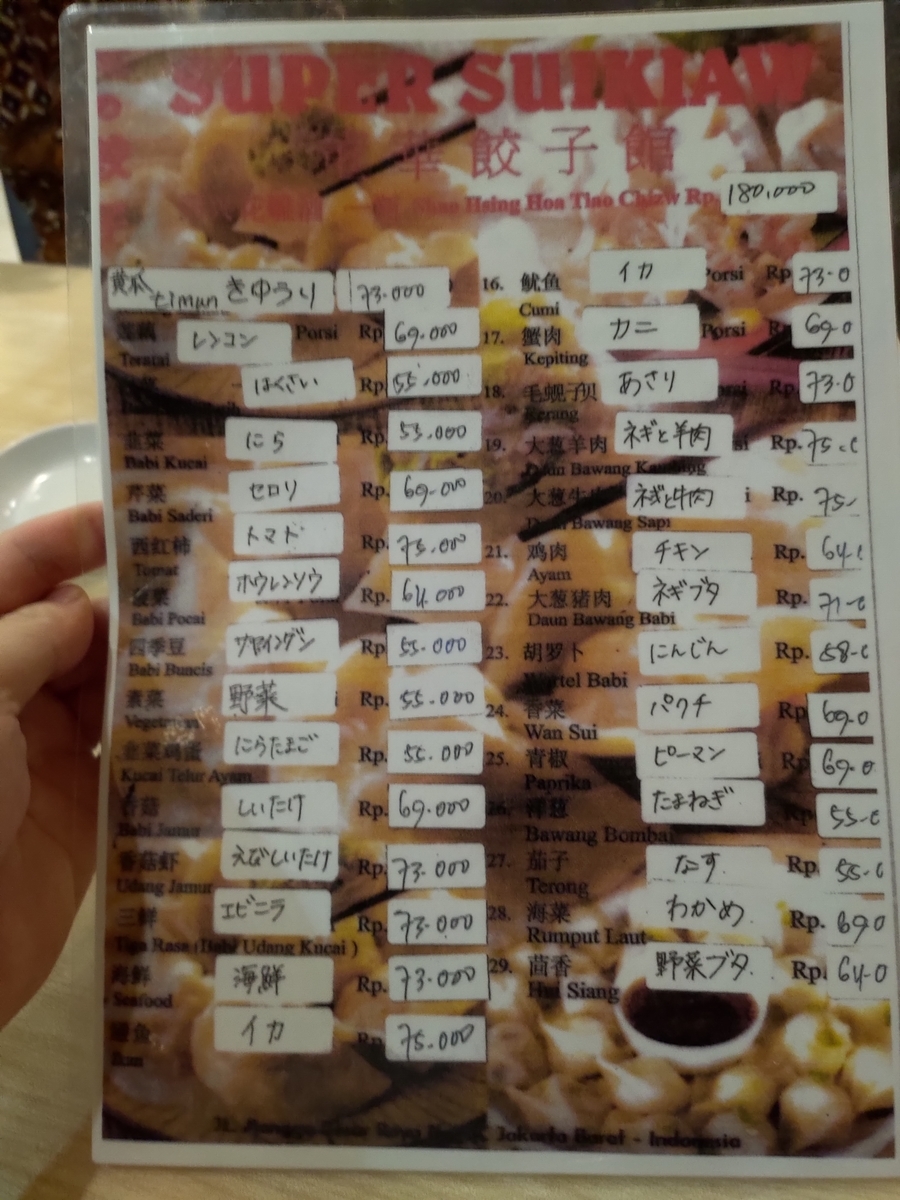 SUPER SUIKIAW
華餃子館
Hsing Hoa Tiao Chizw Rp. 180,000
黄瓜 timun きゆうり 73.000
レンコン Porsi Rp 69.000
Teratai
はくさい Rp. 55,000
韭菜 にら Rp. 53.000
Babi Kucai
芹菜 セロリ Rp. 69.000
Babi Saderi
西紅柿 トマド Rp. 75.000
Tomat
菠菜 ホウレンソウ Rp. 64.000
Babi Pocai
四季豆 Rp 55.000
Babi Buncis
素菜 野菜 Rp. 55.000
Vegetarian
韭菜鸡蛋 にらたまご Rp. 55.000
Kucai Telur Ayam
香菇 しいたけ Rp. 69.000
Babi Jamur
香菇虾 えびしいたけ Rp. 73.000
Udang Jamur
三鮮 エビニラ Rp. 73.000
Tiga Rasa (Babi Udang Kucai )
海鮮 海鮮 Rp. 73.000
Seafood
イカ Rp. 75.000
Ikan
16. 鱿鱼 イカ Porsi Rp 73.0
Cumi
17. 蟹肉 カニ Porsi 69.0
Kepiting
18. 毛蚬子贝 あさり 73.0
Kerang
19. 大葱羊肉 ネギと羊肉 Rp. 75.
Daun Bawang Kambing
20. 大葱牛肉 ネギと牛肉 Rp. 75-
Daun Bawang Sapi
21. 鸡肉 チキン Rp. 64.
Ayam
22. 大葱猪肉 ネギブタ Rp. 71-
Daun Bawang Babi
23. 胡罗卜 にんじん Rp. 58-
Wortel Babi
24. 香菜 パクチ Rp 69.0
Wan Sui
25. 青椒 ピーマン 69.0
Paprika
26. 洋葱 たまねぎ Rp 55-
Bawang Bombai
27. 茄子 なす Rp. 55-
Terong
28. 海菜 わかめ Rp. 690
Rumput Laut
29. 茴香 野菜ブタ Rp. 64-0
Hui Siang
Jakarta Barat - Indonesia